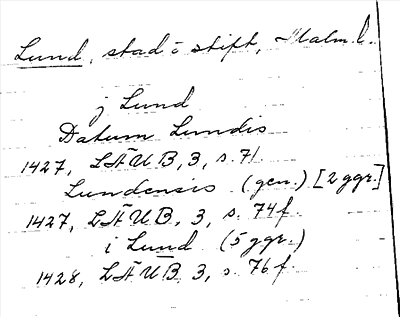 Lund, stad i stift, Malm. l.
j Lund
Datum Lundis
1427, LÄUB, 3, s. 71.
Lundensis (gen.) [2 ggr.]
1427, LÄUB, 3, s. 74 f.
i Lund (5 ggr.)
1428, LÄUB, 3, s. 76 f.